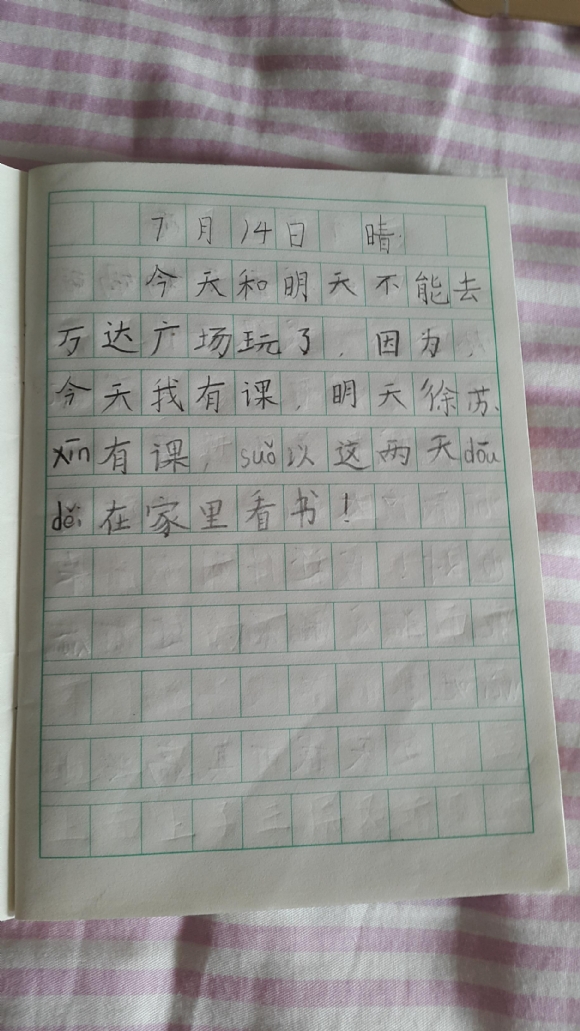 7月14日 晴
今天和明天不能去
万达广场玩了，因为，
今天我有课，明天徐苏
xīn有课，suǒ以这两天dōu
děi在家里看书！